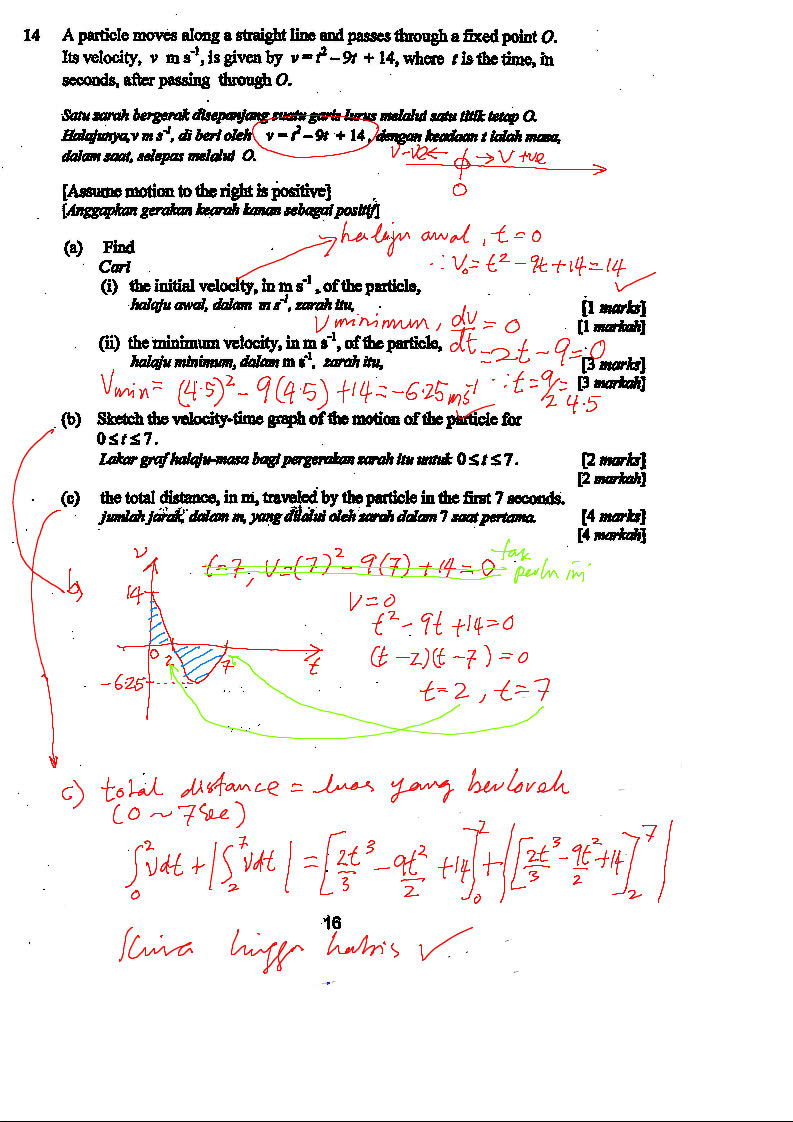 14 A particle moves along a straight line and passes through a fixed point O.
Its velocity, v m s⁻¹, is given by v = t² – 9t + 14, where t is the time, in
seconds, after passing through O.
Satu zarah bergerak disepanjang suatu garis lurus melalui satu titik tetap O.
Halajunya, v m s⁻¹, di beri oleh v = t² – 9t + 14, dengan keadaan t ialah masa,
dalam saat, selepas melalui O.
V -ve ← → V +ve
O
[Assume motion to the right is positive]
[Anggapkan gerakan kearah kanan sebagai positif]
halaju awal, t = 0
(a) Find
Cari
∴ V₀ = t² - 9t + 14 = 14
(i) the initial velocity, in m s⁻¹, of the particle,
halaju awal, dalam m s⁻¹, zarah itu,
[1 marks]
[1 markah]
V minimum, dv/dt = 0
(ii) the minimum velocity, in m s⁻¹, of the particle,
= 2t - 9 = 0
halaju minimum, dalam m s⁻¹, zarah itu,
[3 marks]
[3 markah]
Vmin = (4.5)² - 9(4.5) + 14 = -6.25 ms⁻¹ ∴ t = 9/2 = 4.5
(b) Sketch the velocity-time graph of the motion of the particle for
0 ≤ t ≤ 7.
Lakar graf halaju-masa bagi pergerakan zarah itu untuk 0 ≤ t ≤ 7.
[2 marks]
[2 markah]
(c) the total distance, in m, traveled by the particle in the first 7 seconds.
jumlah jarak, dalam m, yang dilalui oleh zarah dalam 7 saat pertama.
[4 marks]
[4 markah]
b)
v
14
0 2 7 t
-6.25
t = 7, V = (7)² - 9(7) + 14 = 0
tak perlu ini
V = 0
t² - 9t + 14 = 0
(t - 2)(t - 7) = 0
t = 2, t = 7
c) total distance = luas yang berlorek
(0 ~ 7 sec)
∫₀² v dt + |∫₂⁷ v dt| = [2t³/3 - 9t²/2 + 14]₀² + |[2t³/3 - 9t²/2 + 14]₂⁷|
16
kira hingga habis ✓